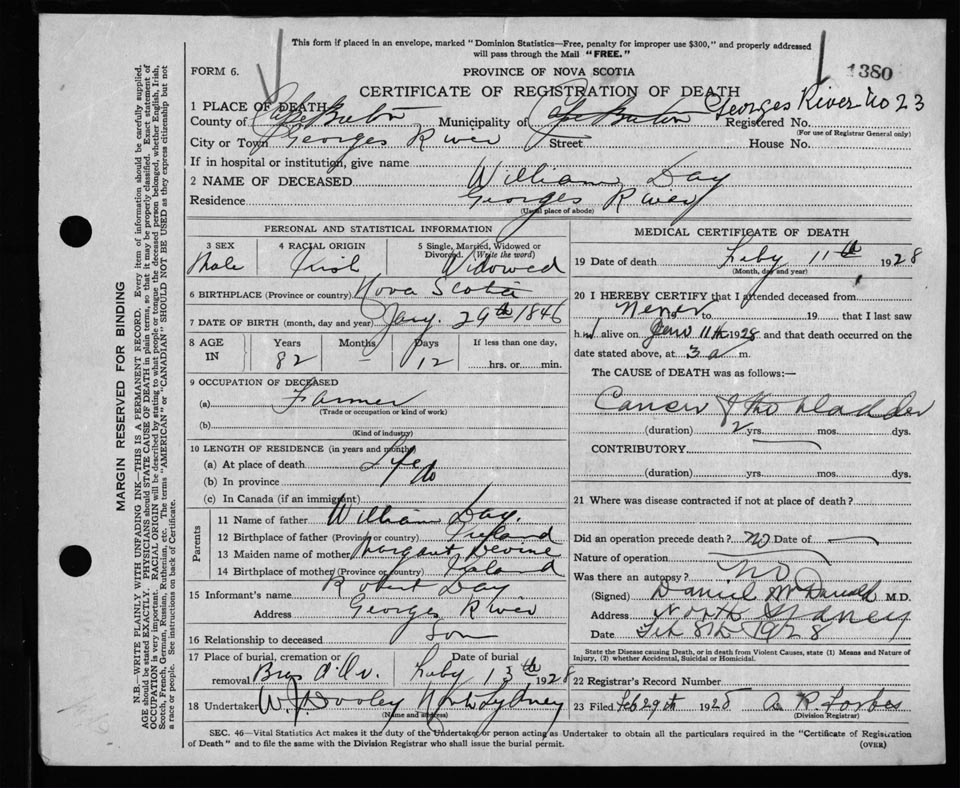 This form if placed in an envelope, marked "Dominion Statistics—Free, penalty for improper use $300," and properly addressed
will pass through the Mail "FREE."
FORM 6.
PROVINCE OF NOVA SCOTIA
1380
CERTIFICATE OF REGISTRATION OF DEATH
Georges River No 23
1 PLACE OF DEATH
County of Cape Breton Municipality of Cape Breton Registered No.
(For use of Registrar General only)
City or Town Georges River Street House No.
If in hospital or institution, give name
2 NAME OF DECEASED William Day
Residence Georges River
(Usual place of abode)
PERSONAL AND STATISTICAL INFORMATION
3 SEX 4 RACIAL ORIGIN 5 Single, Married, Widowed or Divorced (Write the word)
Male Irish Widowed
6 BIRTHPLACE (Province or country) Nova Scotia
7 DATE OF BIRTH (month, day and year) Jany. 29th 1846
8 AGE IN Years Months Days If less than one day,
82 – 12 hrs. or min.
9 OCCUPATION OF DECEASED
(a) Farmer
(Trade or occupation or kind of work)
(b)
(Kind of industry)
10 LENGTH OF RESIDENCE (in years and months)
(a) At place of death Life
(b) In province do
(c) In Canada (if an immigrant)
Parents
11 Name of father William Day.
12 Birthplace of father (Province or country) Ireland
13 Maiden name of mother Margaret Devine
14 Birthplace of mother (Province or country) Ireland
15 Informant's name Robert Day
Address Georges River
16 Relationship to deceased Son
17 Place of burial, cremation or removal Date of burial
Feby 13th 1928
18 Undertaker W. J. Dooley North Sydney
(Name and address)
MEDICAL CERTIFICATE OF DEATH
19 Date of death Feby 11th 1928
(Month, day and year)
20 I HEREBY CERTIFY that I attended deceased from
Never to 19 that I last saw
h alive on 11th 1928 and that death occurred on the
date stated above, at 3 a m.
The CAUSE of DEATH was as follows:—
Cancer of the bladder
(duration) 2 yrs. mos. dys.
CONTRIBUTORY
(duration) yrs. mos. dys.
21 Where was disease contracted if not at place of death?
Did an operation precede death? no Date of
Nature of operation
Was there an autopsy? no
(Signed) Daniel McDonald M.D.
Address North Sydney
Date Feb 8th 1928
State the Disease causing Death, or in death from Violent Causes, state (1) Means and Nature of
Injury, (2) whether Accidental, Suicidal or Homicidal.
22 Registrar's Record Number
23 Filed Feb 29th 1928 A R Forbes
(Division Registrar)
SEC. 46—Vital Statistics Act makes it the duty of the Undertaker or person acting as Undertaker to obtain all the particulars required in the "Certificate of Registration
of Death" and to file the same with the Division Registrar who shall issue the burial permit.
(OVER)
MARGIN RESERVED FOR BINDING
N.B.—WRITE PLAINLY WITH UNFADING INK—THIS IS A PERMANENT RECORD. Every item of information should be carefully supplied.
AGE should be stated EXACTLY. PHYSICIANS should STATE CAUSE OF DEATH in plain terms, so that it may be properly classified. Exact statement of
OCCUPATION is very important. RACIAL ORIGIN will be described by stating to what people or tongue the deceased person belonged, whether English, Irish,
Scotch, French, German, Russian, Ruthenian, etc. The terms "AMERICAN" or "CANADIAN" SHOULD NOT BE USED as they express citizenship but not
a race or people. See instructions on back of Certificate.